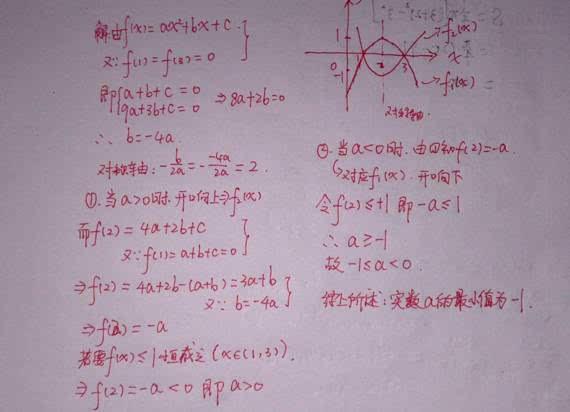 解:由f(x)=ax²+bx+c.
又∵f(1)=f(3)=0
即{a+b+c=0
9a+3b+c=0 ⇒8a+2b=0
∴ b=-4a.
对称轴:-b/2a=-(-4a)/2a=2.
①.当a>0时.开口向上⇒f₂(x)
而f(2)=4a+2b+c
又∵f(1)=a+b+c=0
⇒f(2)=4a+2b-(a+b)=3a+b
又∵b=-4a
⇒f(2)=-a
若要f(x)≤1恒成立(x∈(1,3)).
⇒f(2)=-a<0 即a>0
1
0
-1
2
3
x
f₂(x)
f₁(x)
对称轴.
②.当a<0时.由①知f(2)=-a.
↳对应f₁(x).开口向下
令f(2)≤+1 即-a≤1
∴ a≥-1
故-1≤a<0.
综上所述:实数a的最小值为-1.